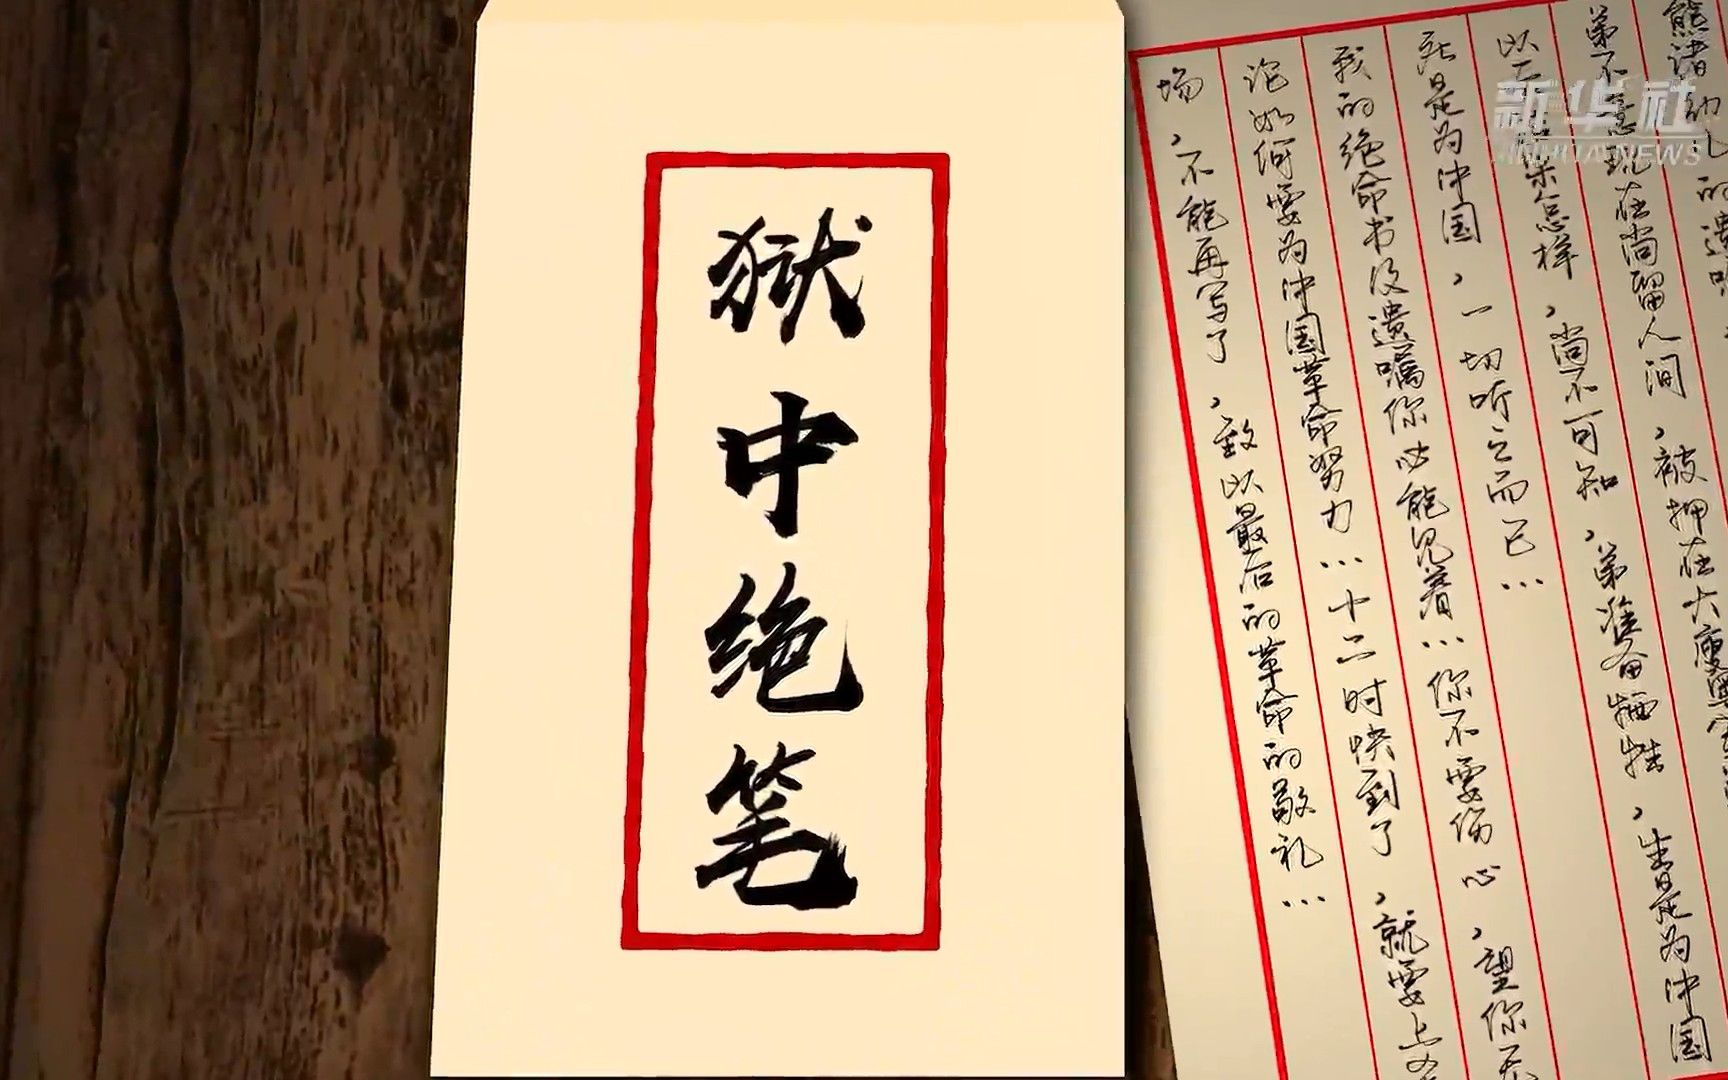 狱中绝笔
新华社
XINHUA NEWS
的遗嘱
弟不意现在尚留人间，被押在大庾粤
以后结果怎样，尚不可知，弟准备牺牲，生是为中国
死是为中国，一切听之而已…
我的绝命书及遗嘱你必能见着…你不要伤心，望你无
论如何要为中国革命努力…十二时快到了，就要上
场，不能再写了，致以最后的革命的敬礼…